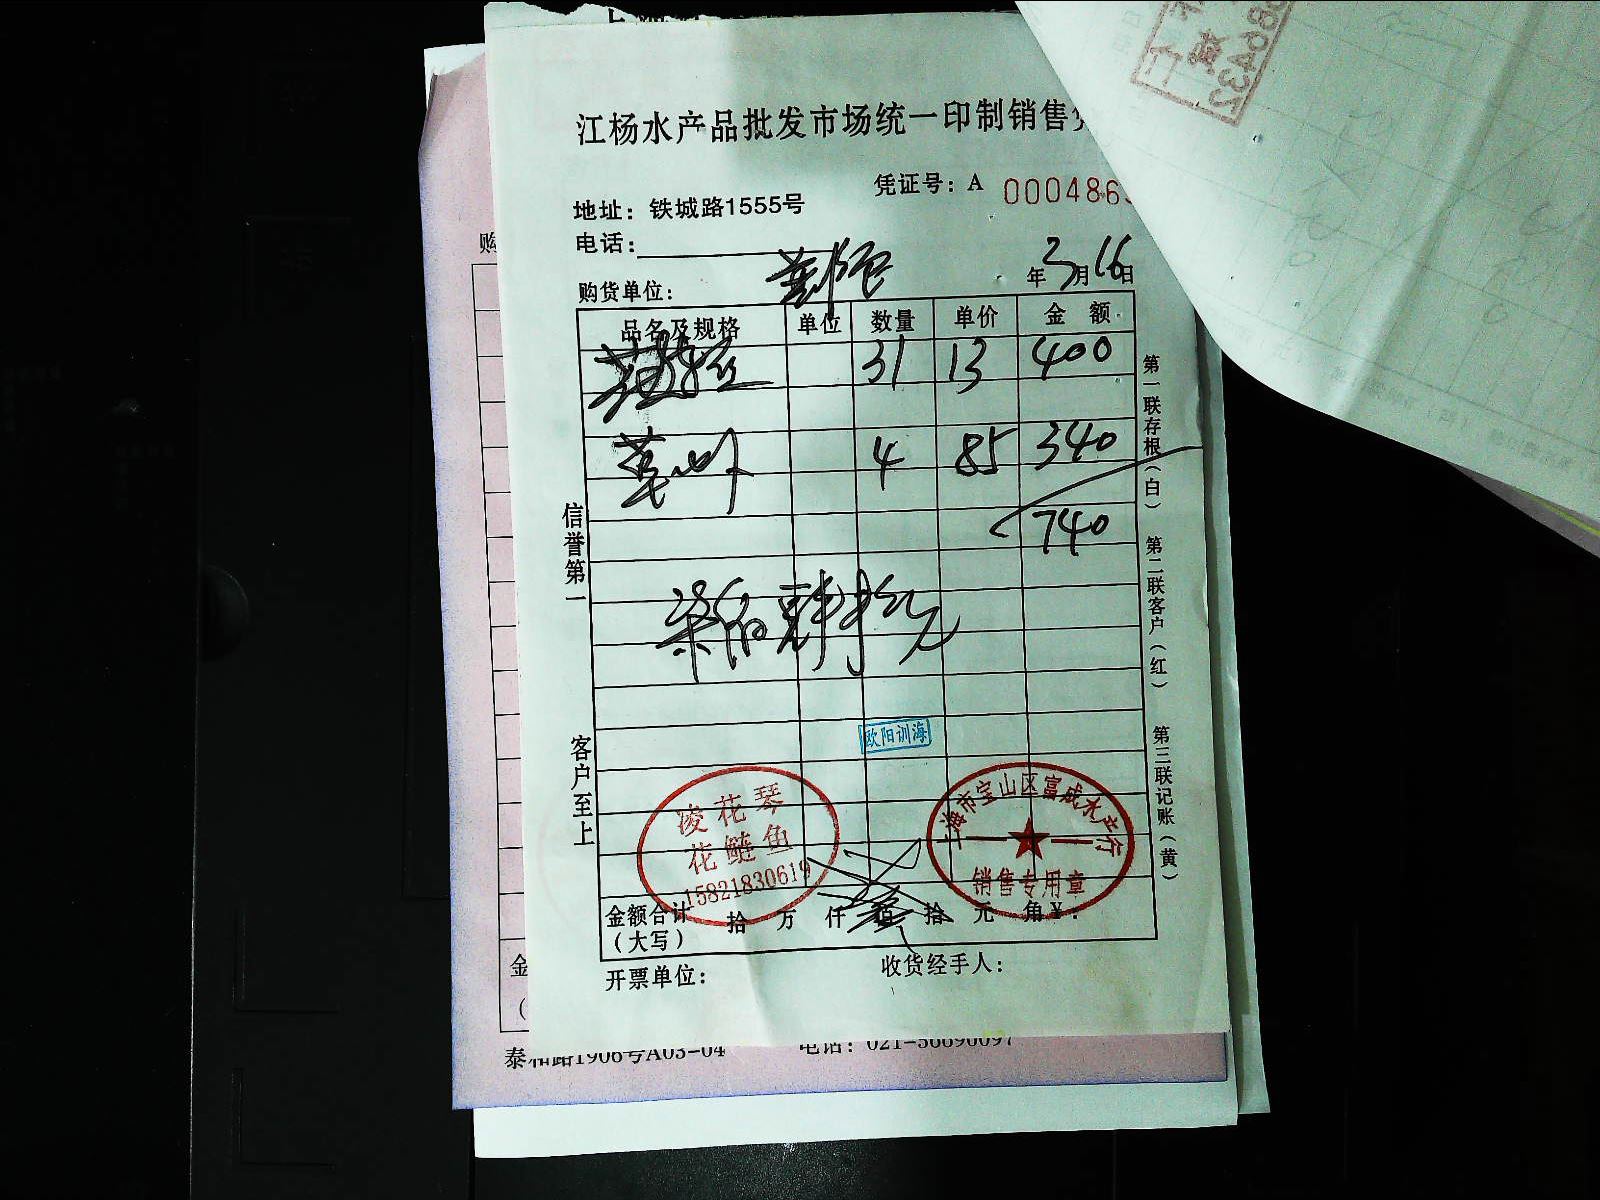 江杨水产品批发市场统一印制销售
凭证号：A 000486
地址：铁城路1555号
电话：
购货单位：
年3月16日
品名及规格 单位 数量 单价 金 额
31 13 400
4 85 340
740
柒佰肆拾元
信誉第一
客户至上
第一联存根（白） 第二联客户（红） 第三联记账（黄）
欧阳训海
凌花琴
花鲢鱼
15821830619
上海市宝山区富成水产行
销售专用章
金额合计
（大写）
拾 万 仟 佰 拾 元 角 ¥：
开票单位：
收货经手人：
购
金
泰和路1906号A03-04 电话：021-56690097